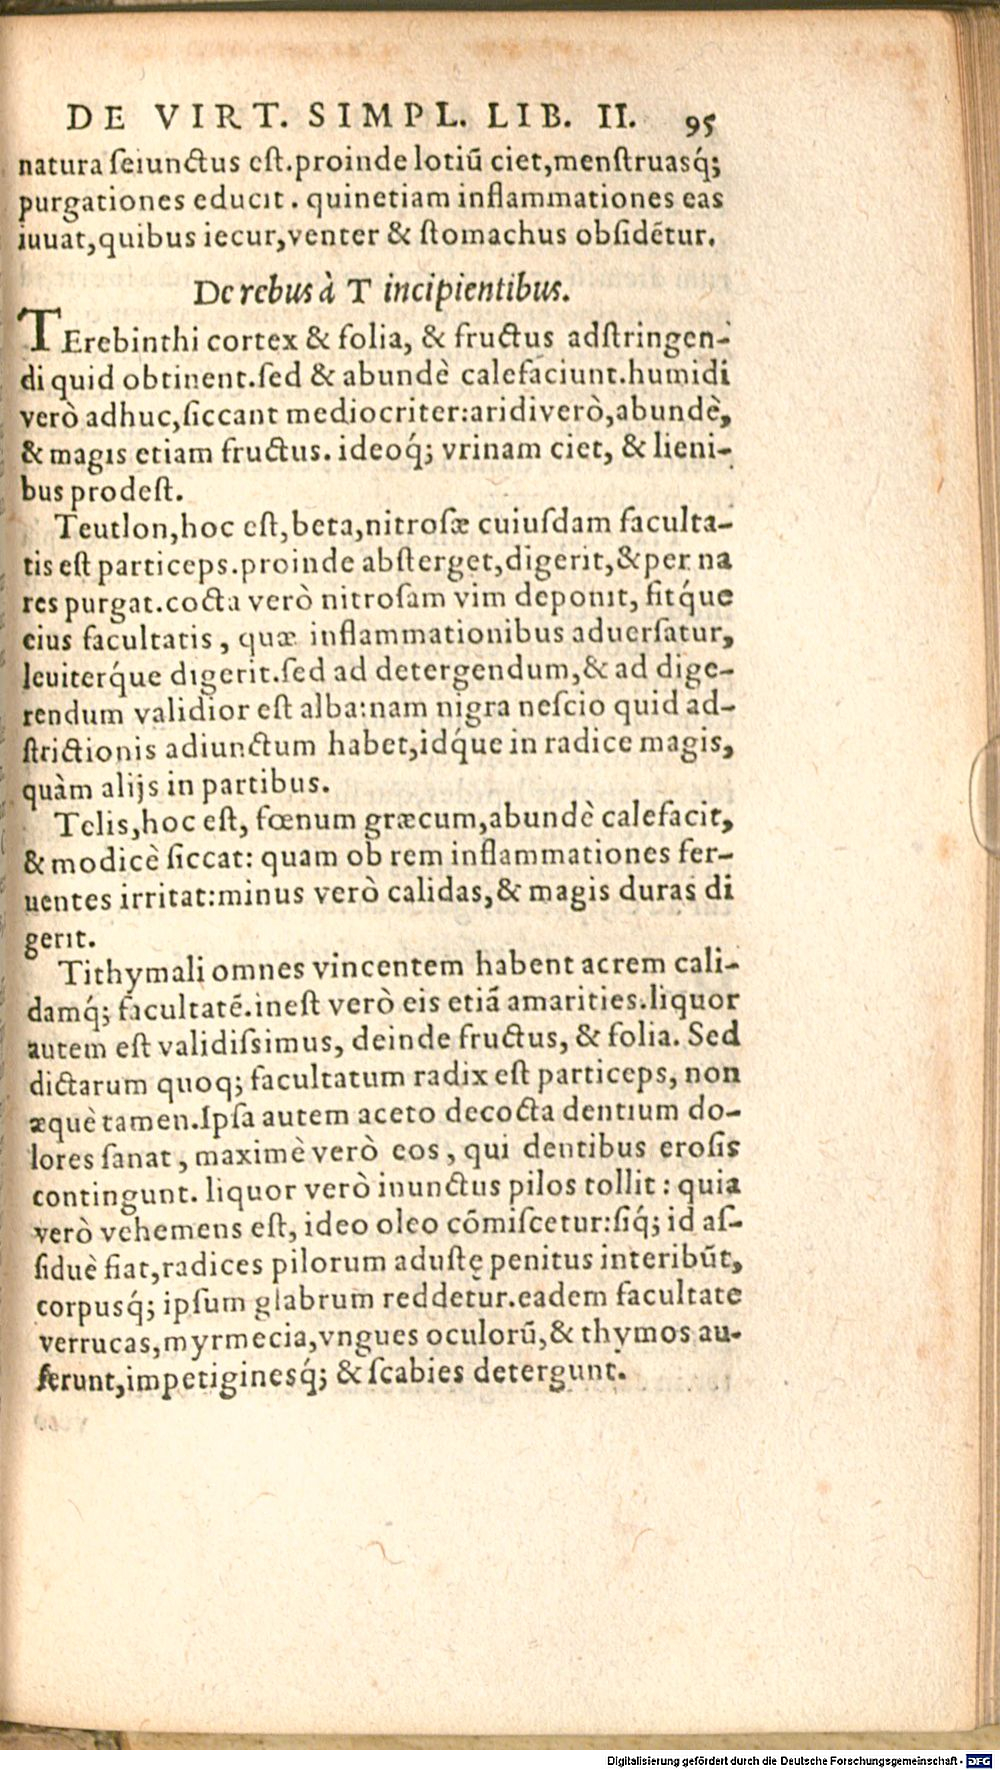 DE VIRT. SIMPL. LIB. II. 95
natura ſeiunctus eſt.proinde lotiũ ciet,menſtruasq́;
purgationes educit. quinetiam inflammationes eas
iuuat,quibus iecur,venter & ſtomachus obſidẽtur.
De rebus à T incipientibus.
TErebinthi cortex & folia, & fructus adſtringen-
di quid obtinent.ſed & abundè calefaciunt.humidi
verò adhuc,ſiccant mediocriter:aridi verò,abundè,
& magis etiam fructus. ideoq́; vrinam ciet, & lieni-
bus prodeſt.
Teutlon,hoc eſt,beta,nitroſæ cuiuſdam faculta-
tis eſt particeps.proinde abſterget,digerit,& per na
res purgat.cocta verò nitroſam vim deponit, fitq́ue
eius facultatis, quæ inflammationibus aduerſatur,
leuiterq́ue digerit.ſed ad detergendum,& ad dige-
rendum validior eſt alba:nam nigra neſcio quid ad-
ſtrictionis adiunctum habet,idq́ue in radice magis,
quàm alijs in partibus.
Telis,hoc eſt, fœnum græcum,abundè calefacit,
& modicè ſiccat: quam ob rem inflammationes fer-
uentes irritat:minus verò calidas,& magis duras di
gerit.
Tithymali omnes vincentem habent acrem cali-
damq́; facultatẽ.ineſt verò eis etiã amarities.liquor
autem eſt validiſsimus, deinde fructus, & folia. Sed
dictarum quoq; facultatum radix eſt particeps, non
æquè tamen.Ipſa autem aceto decocta dentium do-
lores ſanat, maximè verò eos, qui dentibus eroſis
contingunt. liquor verò inunctus pilos tollit: quia
verò vehemens eſt, ideo oleo cõmiſcetur:ſiq́; id aſ-
ſiduè fiat,radices pilorum aduſtę penitus interibũt,
corpusq́; ipſum glabrum reddetur.eadem facultate
verrucas,myrmecia,vngues oculorũ,& thymos au-
ferunt,impetiginesq́; & ſcabies detergunt.
Digitalisierung gefördert durch die Deutsche Forschungsgemeinschaft - DFG